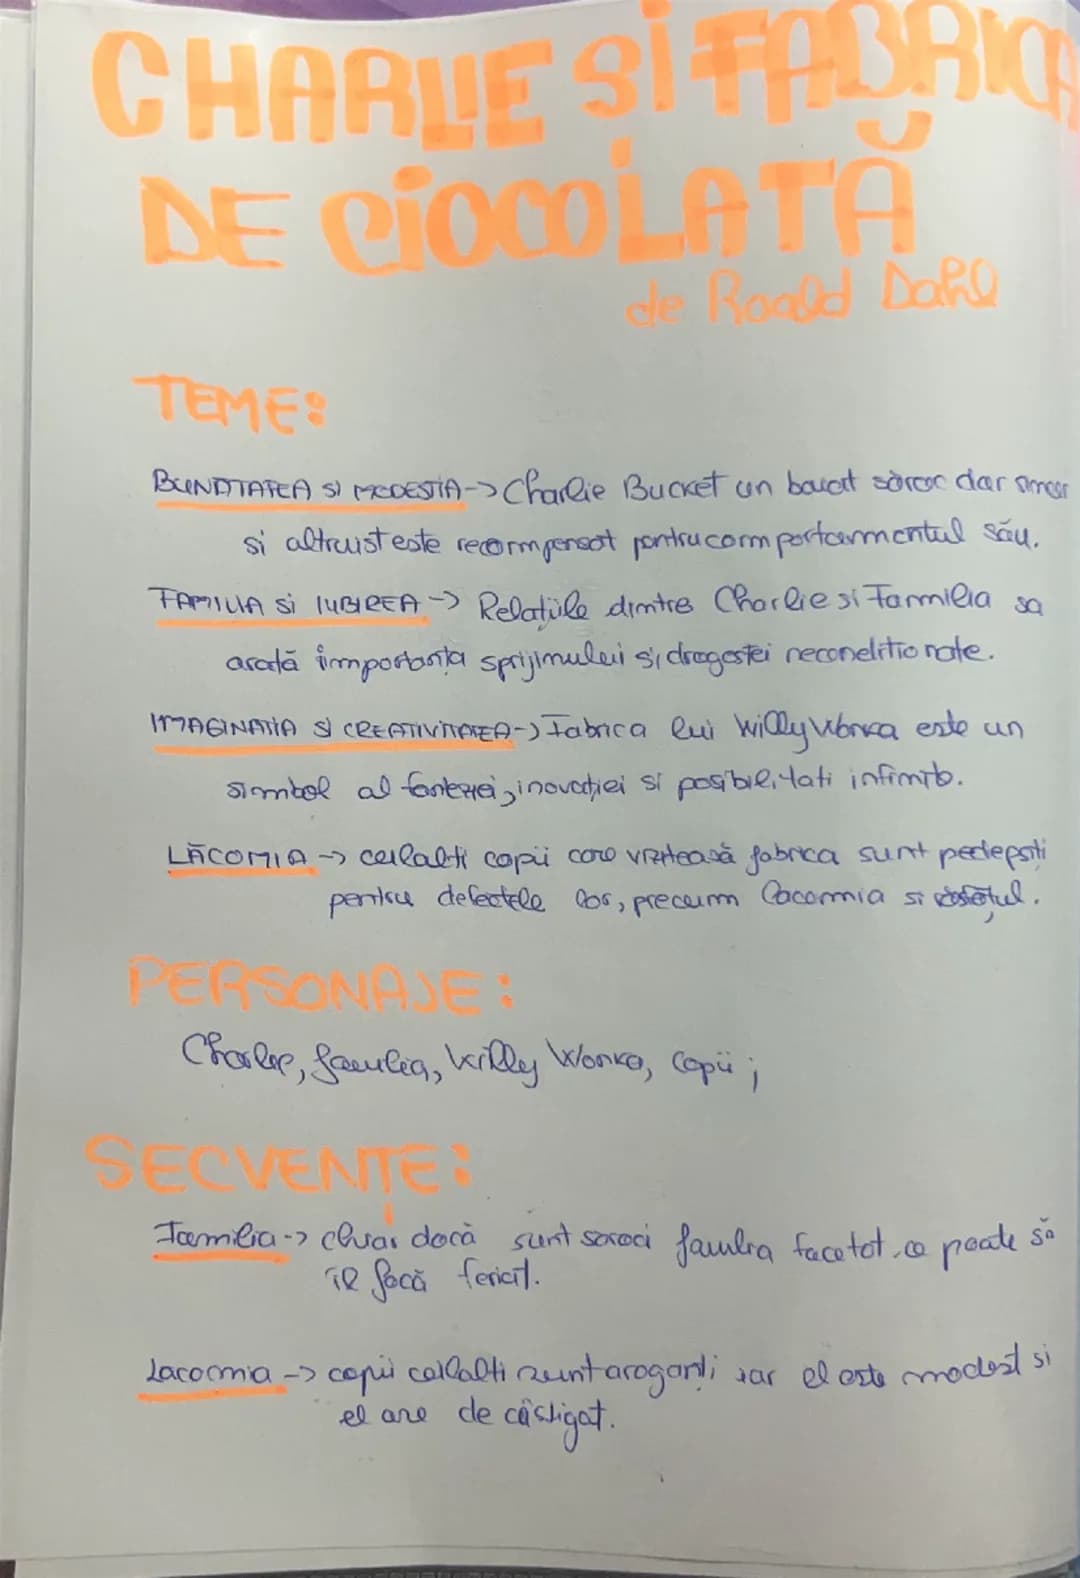 CHARLIE SI FABRICA
DE CIOCOLATĂ
de Roald Dahl
TEME:
BUNATATEA SI MODESTIA -> Charlie Bucket un baiat sărac dar sincer
si altruist este recompensat pentru comportamentul său.
FAMILIA SI IUBIREA -> Relațiile dintre Charlie si Familia sa
arată importanța sprijinului si dragostei neconditionate.
IMAGINATIA SI CREATIVITATEA -> Fabrica lui Willy Wonka este un
simbol al fanteziei, inovației si posibilitati infinite.
LĂCOMIA -> ceilalti copii care vizitează fabrica sunt pedepsiti
pentru defectele lor, precum lacomia si
PERSONAJE:
Charlie, familia, Willy Wonka, copii ;
SECVENȚE:
Familia -> chiar dacă sunt saraci familia face tot ce poate să
îl facă fericit.
Lacomia -> copii ceilalti sunt aroganți iar el este modest si
el are de câstigat.